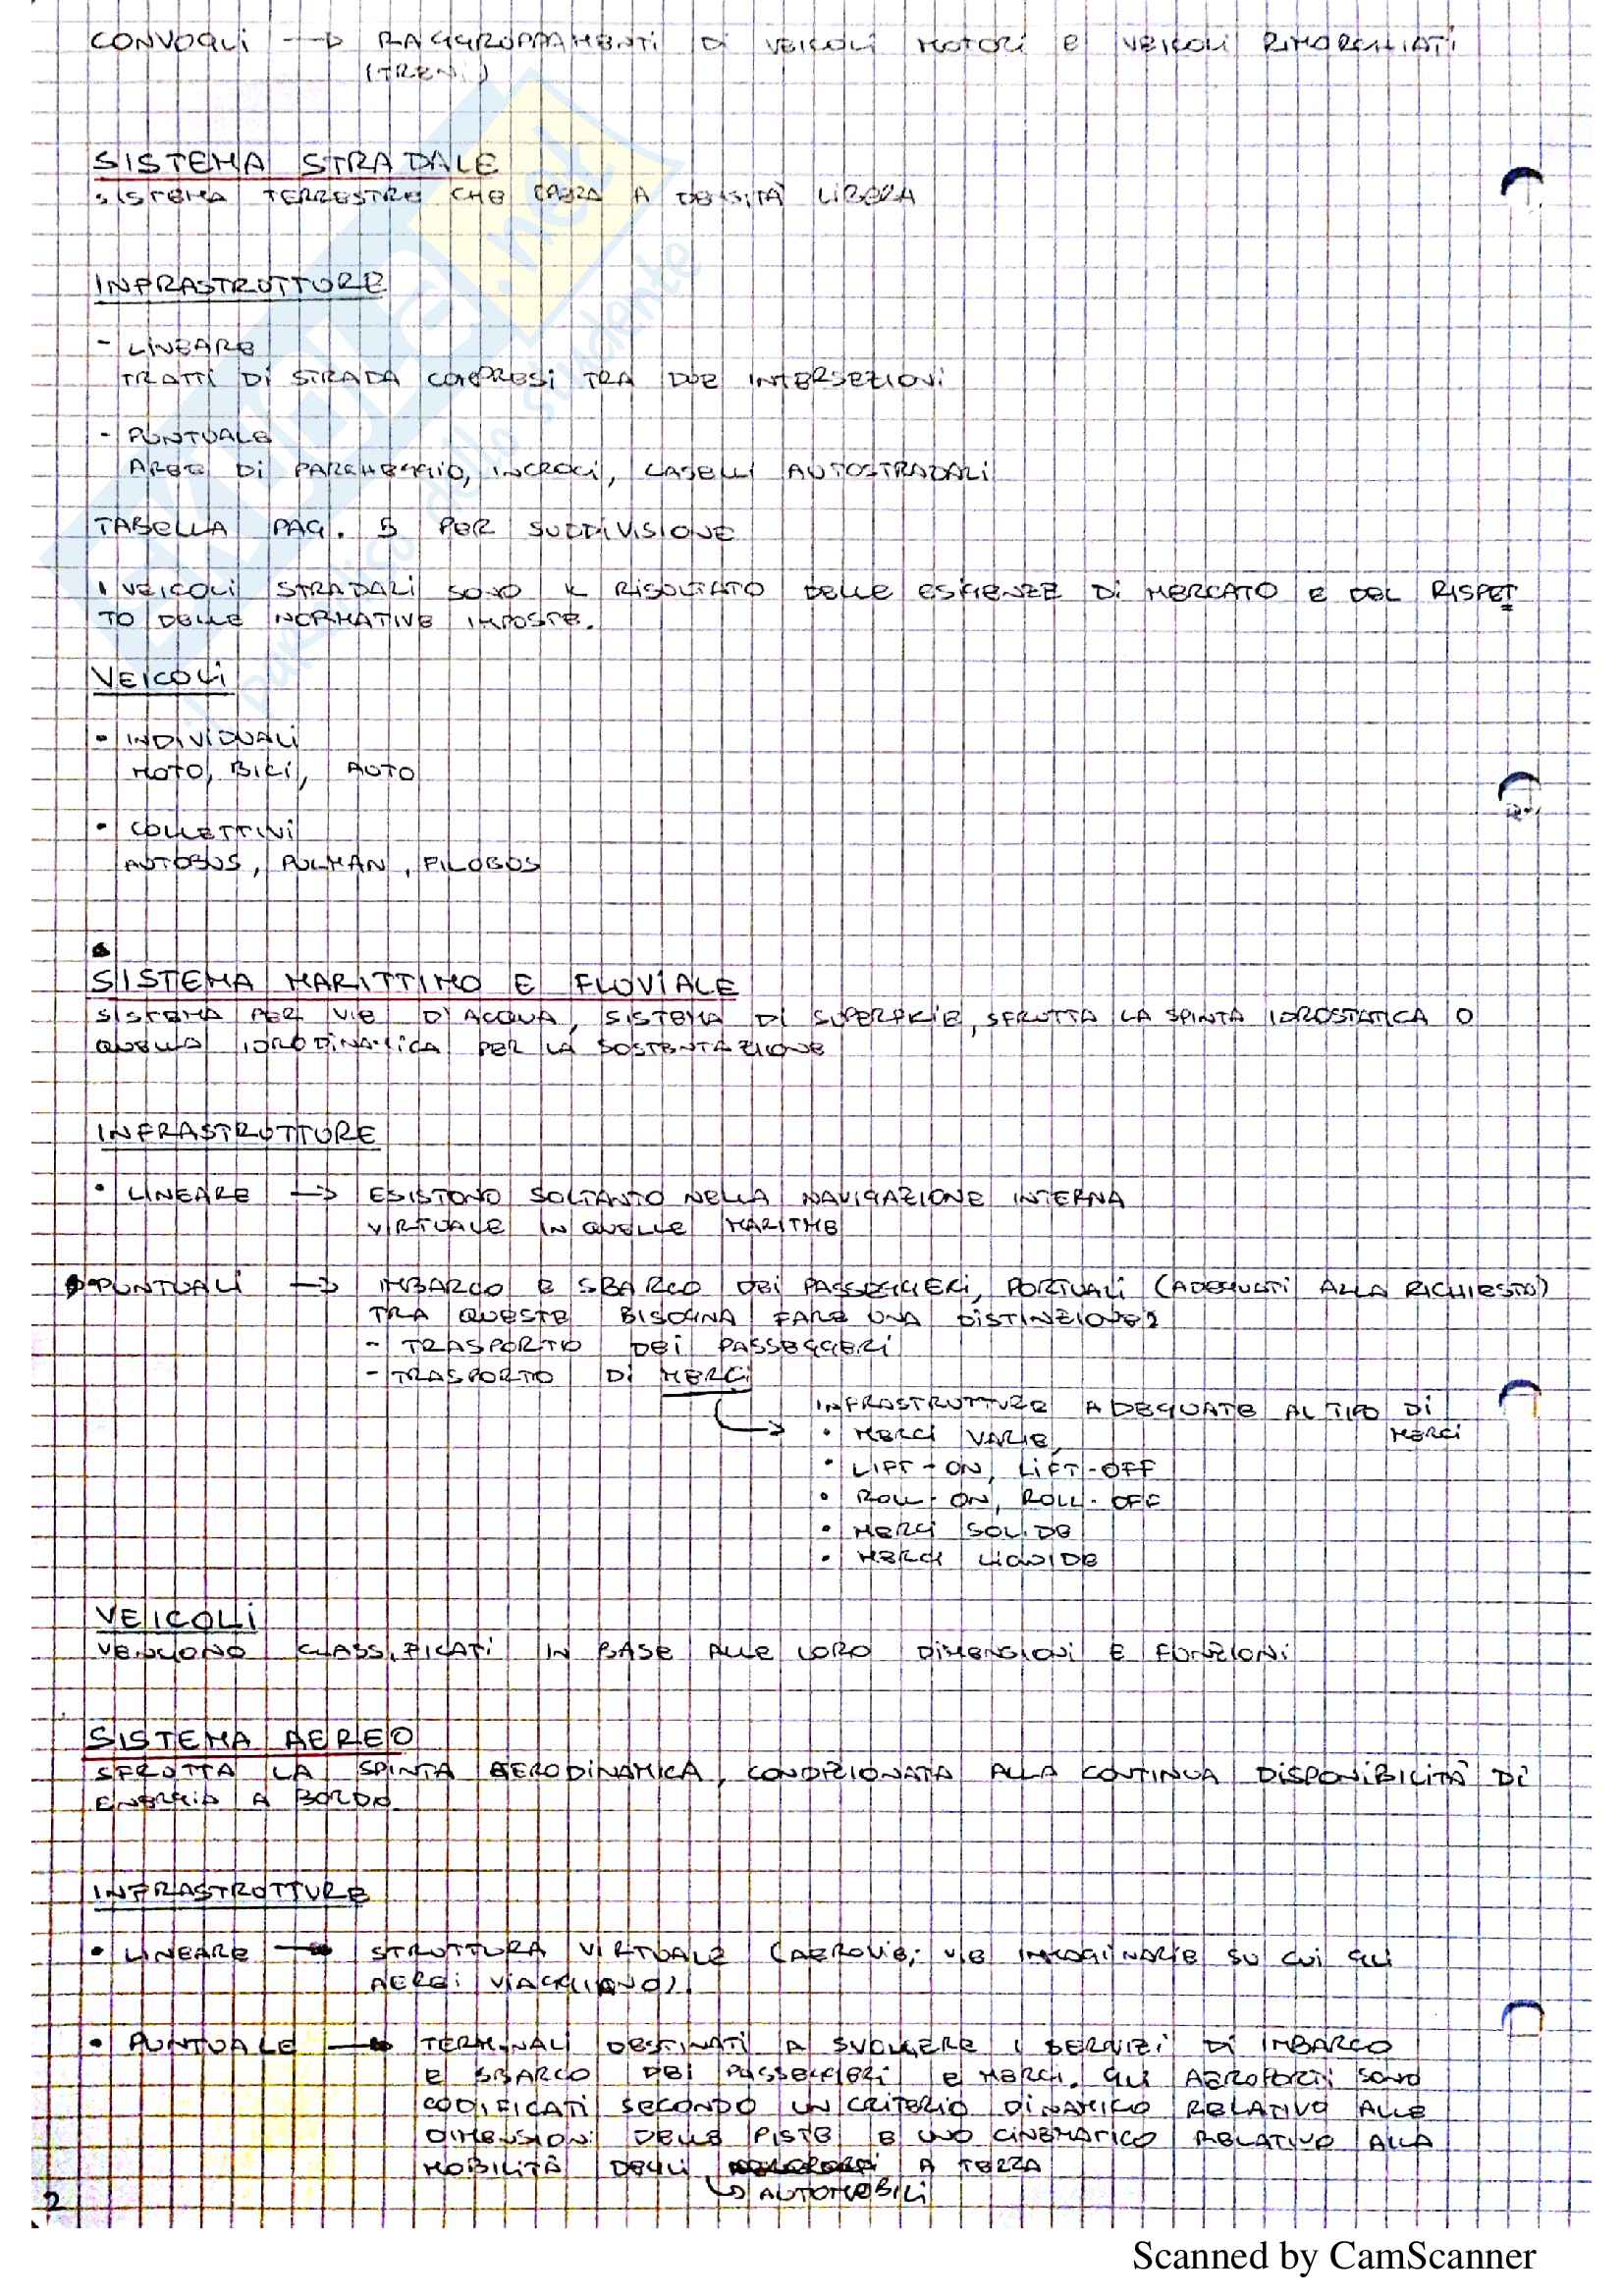 CONVOGLI → RAGGRUPPAMENTI DI VEICOLI MOTORI E VEICOLI RIMORCHIATI
(TRENI)
SISTEMA STRADALE
SISTEMA TERRESTRE CHE OPERA A DENSITÀ LIBERA
INFRASTRUTTURE
- LINEARE
TRATTI DI STRADA COMPRESI TRA DUE INTERSEZIONI
- PUNTUALE
AREE DI PARCHEGGIO, INCROCI, CASELLI AUTOSTRADALI
TABELLA PAG. 5 PER SUDDIVISIONE
I VEICOLI STRADALI SONO IL RISULTATO DELLE ESIGENZE DI MERCATO E DEL RISPET
TO DELLE NORMATIVE IMPOSTE.
VEICOLI
• INDIVIDUALI
MOTO, BICI, AUTO
• COLLETTIVI
AUTOBUS, PULMAN, FILOBUS
SISTEMA MARITTIMO E FLUVIALE
SISTEMA PER VIE D'ACQUA, SISTEMA DI SUPERFICIE, SFRUTTA LA SPINTA IDROSTATICA O
QUELLA IDRODINAMICA PER LA SOSTENTAZIONE
INFRASTRUTTURE
• LINEARE → ESISTONO SOLTANTO NELLA NAVIGAZIONE INTERNA
VIRTUALE IN QUELLE MARITIME
• PUNTUALI → IMBARCO E SBARCO DEI PASSEGGIERI, PORTUALI (ADEGUATI ALLA RICHIESTA)
TRA QUESTE BISOGNA FARE UNA DISTINZIONE:
- TRASPORTO DEI PASSEGGERI
- TRASPORTO DI MERCI
→ INFRASTRUTTURE ADEGUATE AL TIPO DI
MERCI
• MERCI VARIE,
• LIFT-ON, LIFT-OFF
• ROLL-ON, ROLL-OFF
• MERCI SOLIDE
• MERCI LIQUIDE
VEICOLI
VENGONO CLASSIFICATI IN BASE ALLE LORO DIMENSIONI E FUNZIONI
SISTEMA AEREO
SFRUTTA LA SPINTA AERODINAMICA, CONDIZIONATA ALLA CONTINUA DISPONIBILITÀ DI
ENERGIA A BORDO
INFRASTRUTTURE
• LINEARE → STRUTTURA VIRTUALE (AEROVIE; VIE IMMAGINARIE SU CUI GLI
AEREI VIAGGIANO).
• PUNTUALE → TERMINALI DESTINATI A SVOLGERE I SERVIZI DI IMBARCO
E SBARCO DEI PASSEGGIERI E MERCI. GLI AEROPORTI SONO
CODIFICATI SECONDO UN CRITERIO DINAMICO RELATIVO ALLE
DIMENSIONI DELLE PISTE E UNO CINEMATICO RELATIVO ALLA
MOBILITÀ DEGLI A TERRA
→ AUTOMOBILI
2
Scanned by CamScanner